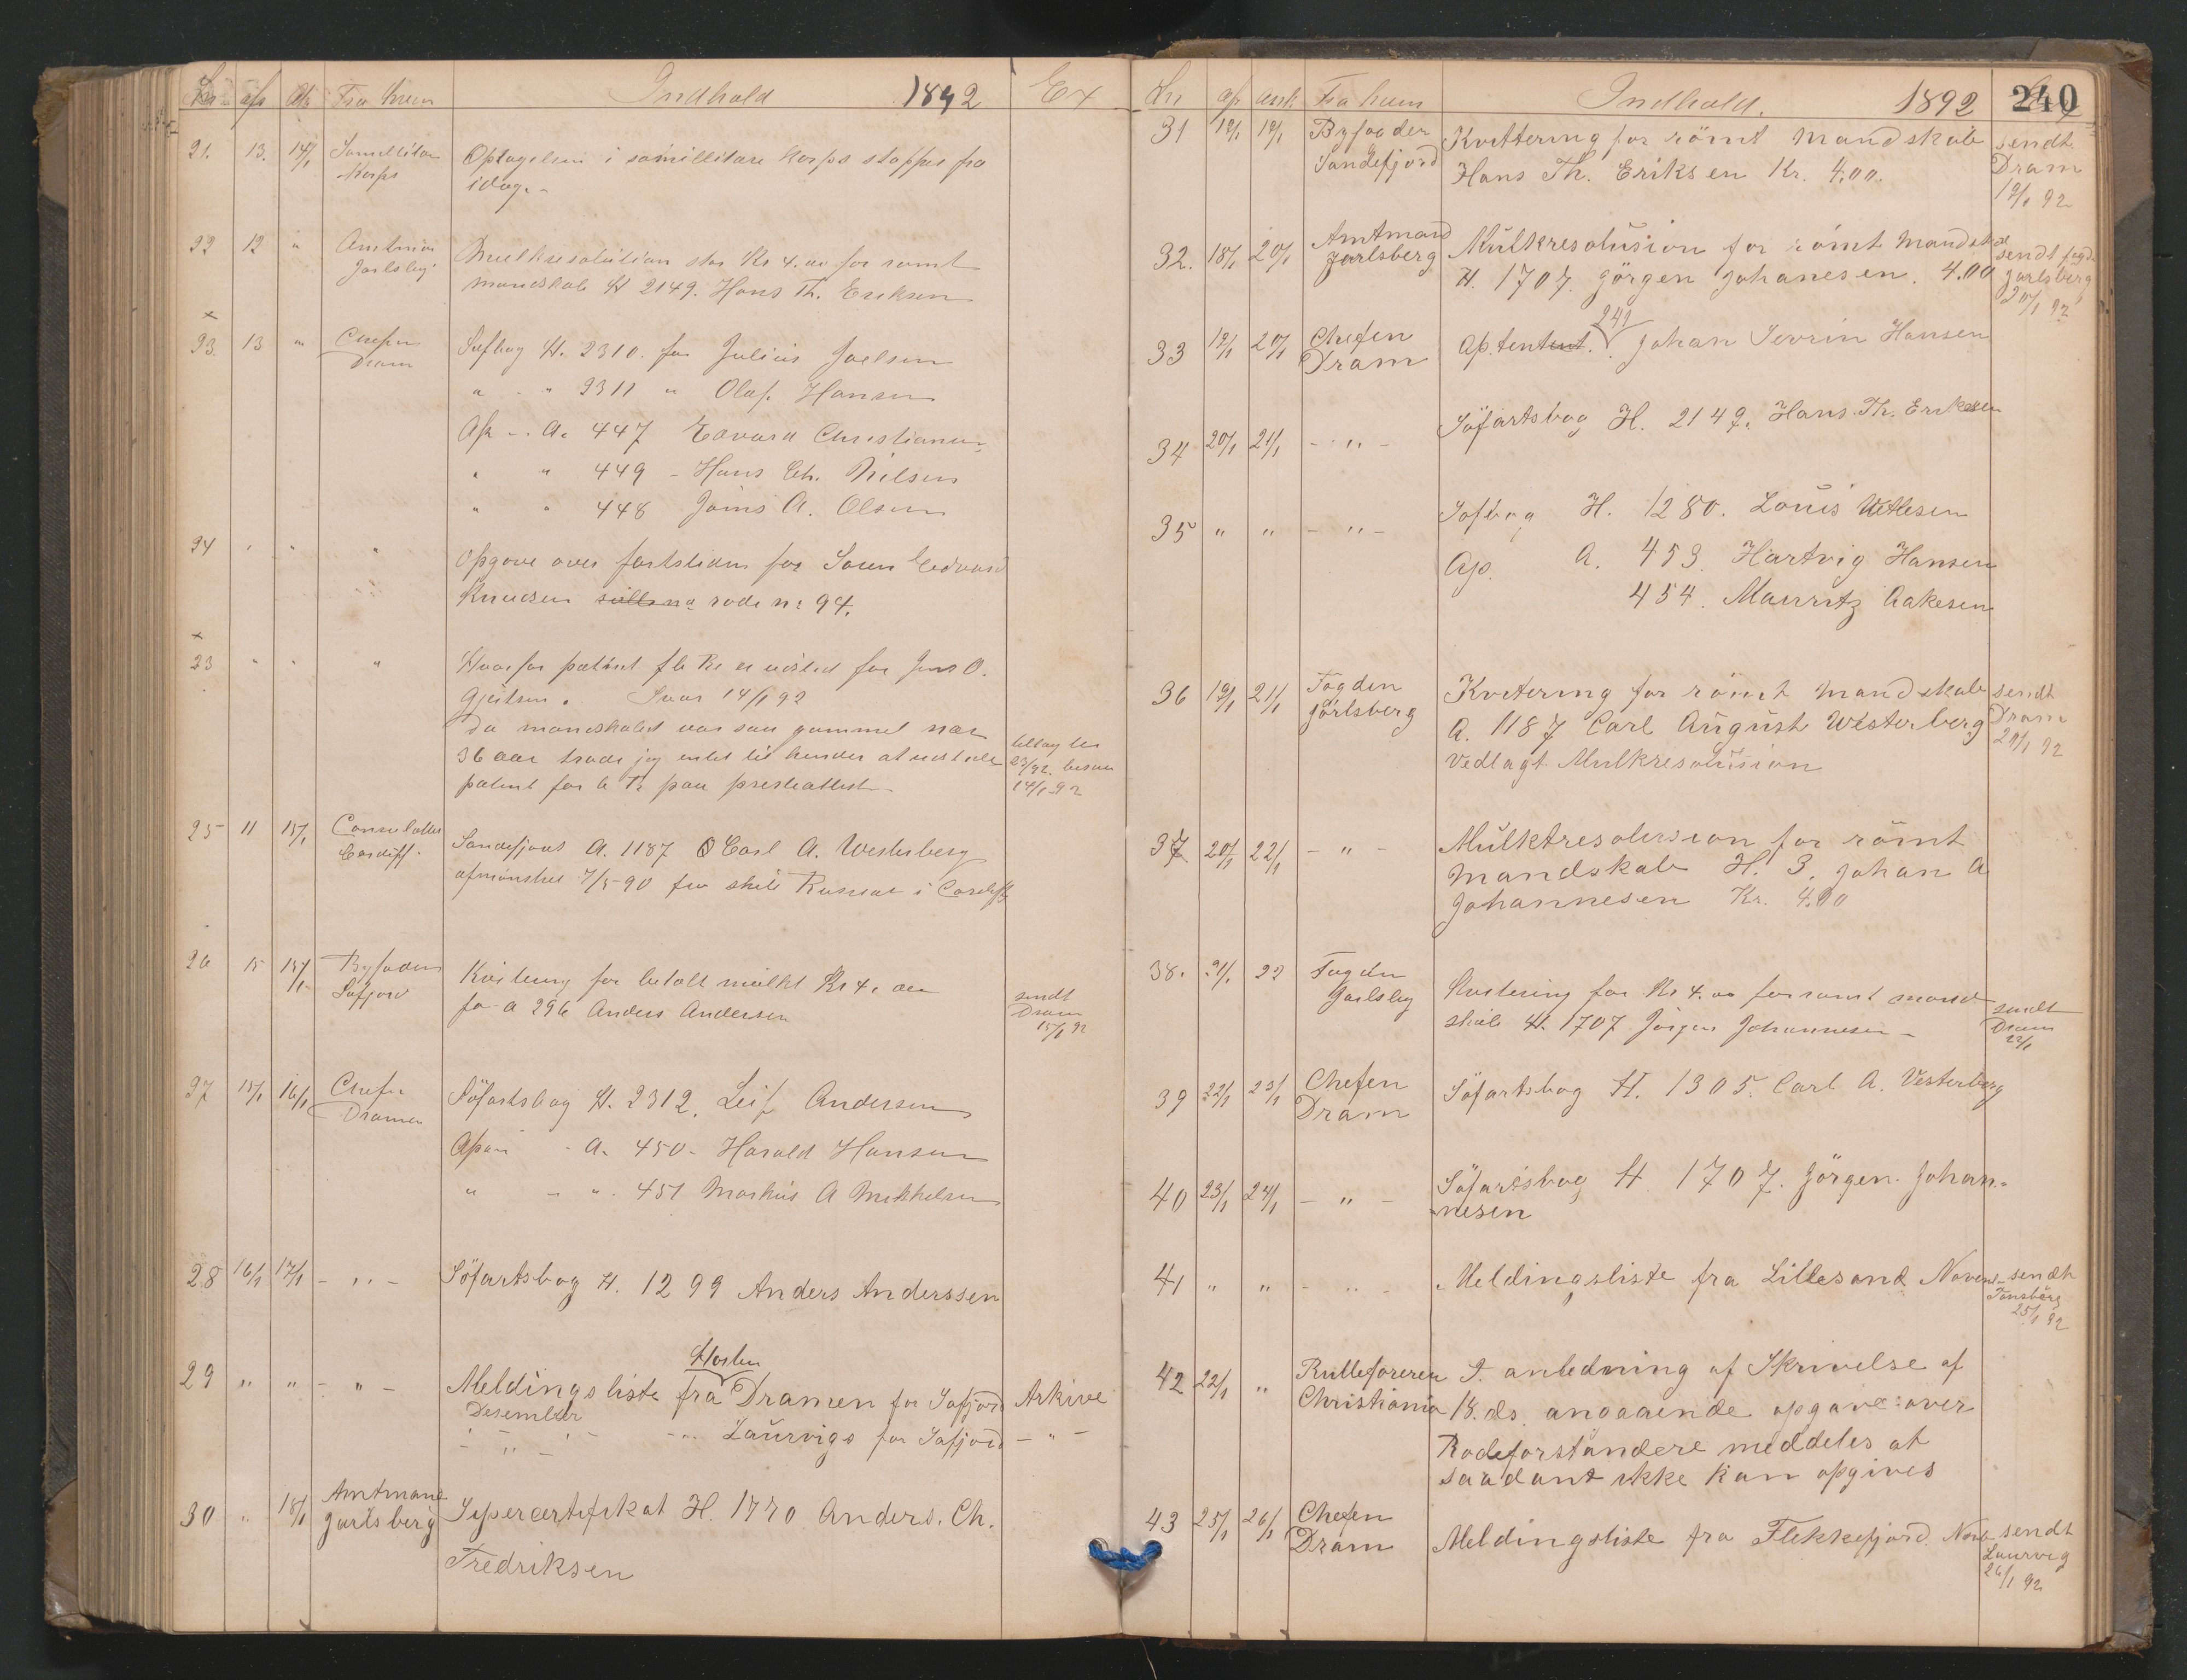 Indhold 1892 Ex
Fra hvem
21. 13. 14/1 Korps
Optagelsen i sömillitære korps stoppes fra
idag.
22 12 "
Jarlsberg
Mulkresolution stor Kr 4.00 for römt
mandskab H 2149. Hans Th. Eriksen
23. 13 " Chefen
Dram
Söfbog H. 2310. for Julius Joelsen
" " 2311 " Olaf Hansen
A. 447 Edvard Christiansen
" " 449 - Hans Ch. Nilsen
" " 448 A. Olsen
24 " " "
Opgave over fartstiden for Edvard
Knudsen rode nr 94.
23 " " "
Hvorfor er udsted for Jens O.
Svar 14/1 92
Da mandskabet var saa gammel
36 aar jeg intet til hinder at udstede
patent for paa
14/1 92
25 11 15/1 Consulatet
Cardiff.
Sandefjords A. 1187 Carl A. Westerberg
afmönstret 7/5-90 fra skib i Cardiff
26 15 15/1 Byfoden
Safjord
Kvitering for betalt mulkt Kr 4.00
for A 296 Anders Andersen
sendt
Dram
15/1 92
27 15/1 16/1 Chefen
Dramen
Söfartsbog H. 2312. Leif Andersen
A. 450 - Harald Hansen
" - " 451 Markus A Mikkelsen
28 16/1 17/1 - " -
Söfartsbog H. 1299 Anders Anderssen
29 " " - " -
Meldingsliste fra Dramen for Safjord Arkive
Desember
- " - - " Laurvigs for Safjord - " -
30 " 18/1 Amtmand
Jarlsberg
H. 1770 Anders. Ch.
Fredriksen
Fra hvem Indhold. 1892 240
31 19/1 19/1 Byfogden
Sandefjord
Kvittering for römt Mandskab
Hans Th. Eriksen Kr. 4.00.
sendt
Dram
19/1 92
32. 18/1 20/1 Amtmand
Jarlsberg
Mulkresolusion for römt Mandskab
H. 1707. Jörgen Johanesen. 4.00
sendt fogd.
Jarlsberg
20/1 92
33 19/1 20/1 Chefen
Dram
241
Ap.tentent. Johan Sevrin Hansen
34 20/1 21/1 - " -
Söfartsbog H. 2149. Hans. Th. Eriksen
35 " " - " -
Söfbog H. 1280. Louis Vetlesen
Ap. A. 453. Hartvig Hansen
454. Mauritz Aakesen
36 19/1 21/1 Fogden
Jarlsberg
Kvitering for römt Mandskab
A. 1187 Carl August Westerberg
Vedlagt Mulkresolusion
sendt
Dram
21/1 92
37 20/1 22/1 - " -
Mulktresolusion for römt
Mandskab H. 3. Johan A
Johannesen Kr. 4.00
38. 21/1 22 Fogden
Jarlsberg
Kvitering for Kr 4.00 for römt mand
skab H. 1707 Jörgen Johannesen -
sendt
Dram
22/1
39 22/1 23/1 Chefen
Dram
Söfartsbog H. 1305. Carl A. Vesterberg
40 23/1 24/1 - " -
Söfartsbog H 1707. Jörgen. Johan-
nesen
41 " " - " -
Meldingsliste fra Lillesand Novem-
sendt
Tönsberg
25/1 92
42 22/1 " Rulleföreren
Christiania
I. anledning af Skrivelse af
18. ds. angaaende opgave over
Rodeforstandere meddeles at
saadant ikke kan opgives
43 25/1 26/1 Chefen
Dram
Meldingsliste fra Flekkefjord Nov
sendt
Laurvig
26/1 92